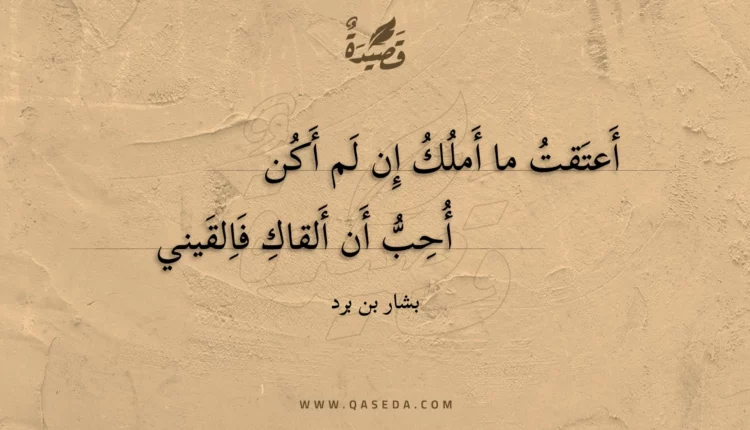 قَصِيدَةٌ
أَعتَقتُ ما أَملُكُ إِن لَم أَكُن
أُحِبُّ أَن أَلقاكِ فَاِلقَيني
بشار بن برد
WWW.QASEDA.COM